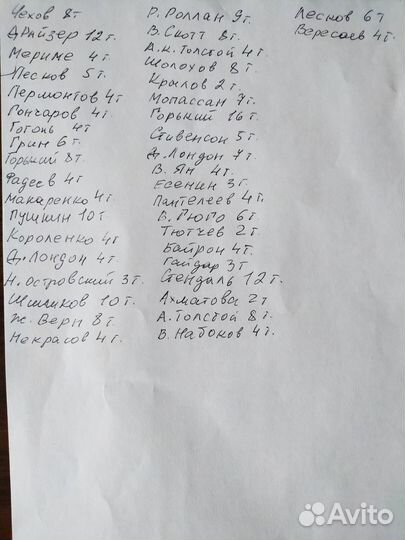 Чехов 8т
Драйзер 12т.
Мериме 4т.
Лесков 5т.
Лермонтов 4т
Гончаров 4т.
Гоголь 4т
Грин 6т.
Горький 8т.
Фадеев 4т
Макаренко 4т.
Пушкин 10т
Короленко 4т
Д. Лондон 4т.
Н. Островский 3т.
Шишков 10т.
Ж. Верн 8т
Некрасов 4т.
Р. Роллан 9т.
В. Скотт 8т.
А.К. Толстой 4т.
Шолохов 8т.
Крылов 2т.
Мопассан 7т.
Горький 16т.
Стивенсон 5т.
Д. Лондон 7т.
В. Ян 4т.
Есенин 3т.
Пантелеев 4т.
В. Гюго 6т.
Тютчев 2т.
Байрон 4т.
Гайдар 3т
Стендаль 12т.
Ахматова 2т
А. Толстой 8т.
В. Набоков 4т.
Лесков 6т
Вересаев 4т.
Avito